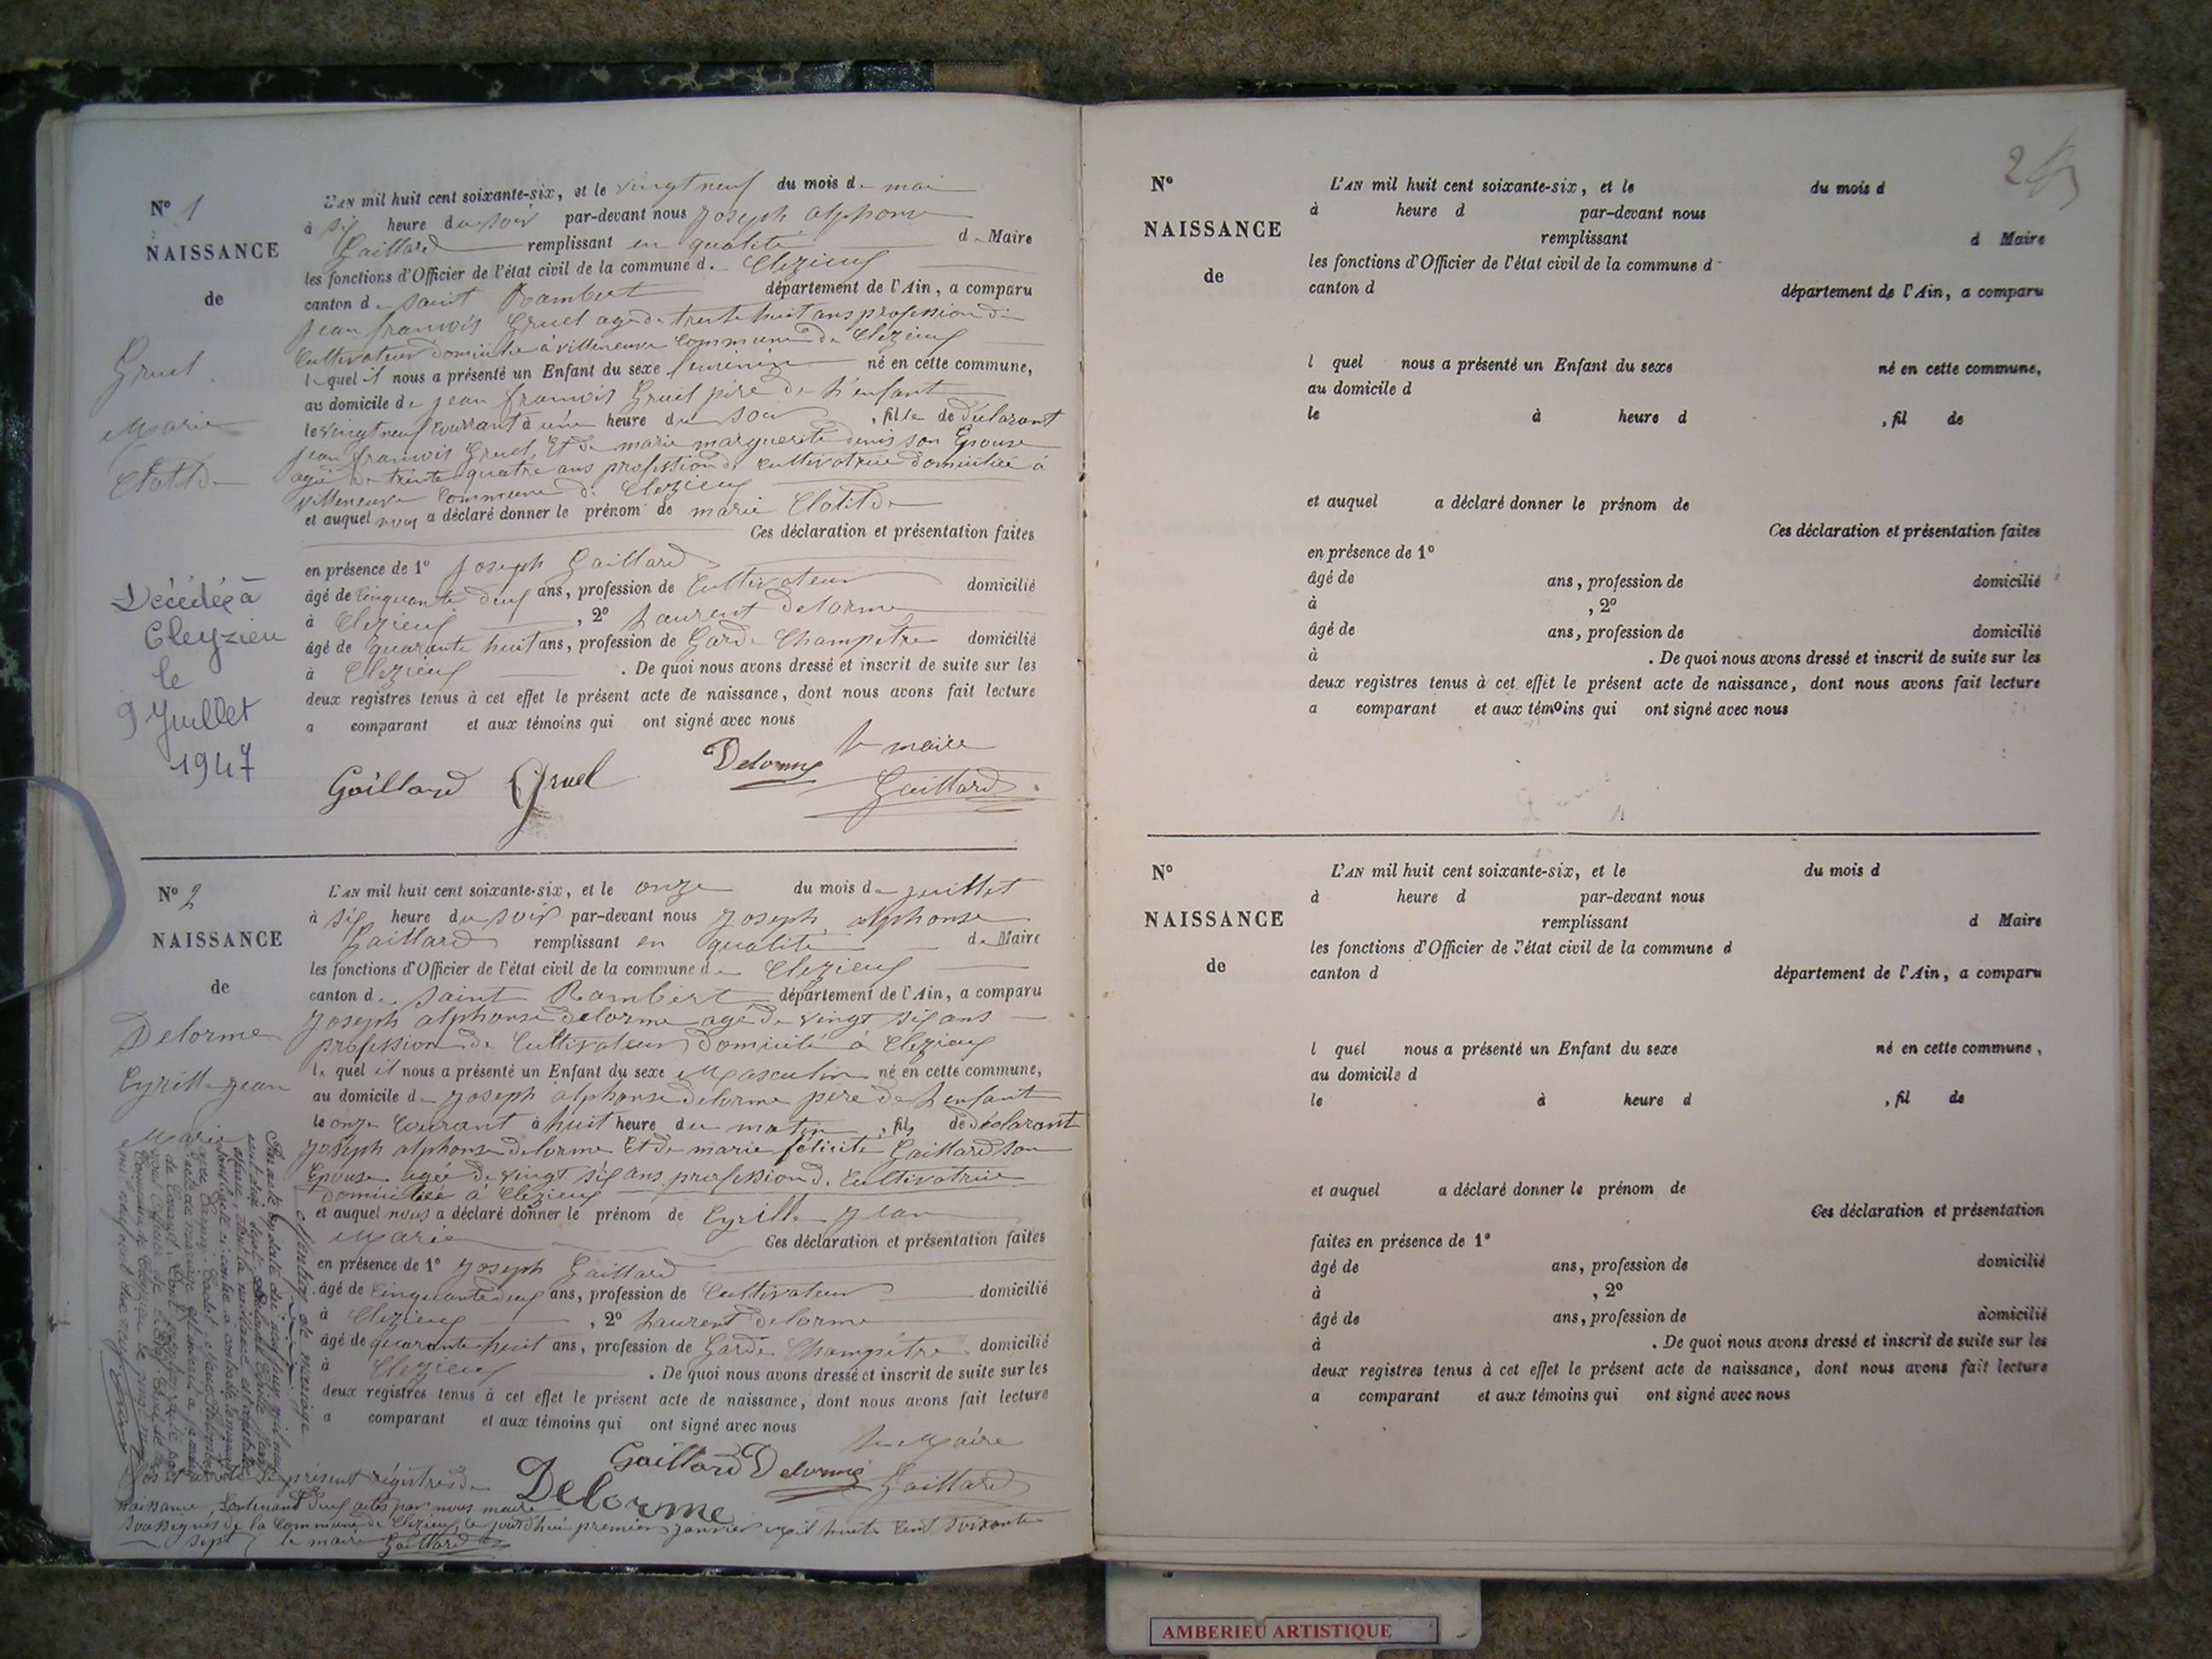 N° 1
NAISSANCE
de
Gruel
Marie
Clotilde
Décédée à
Cleyzieu
le
9 Juillet
1947
L'AN mil huit cent soixante-six, et le vingt neuf du mois de mai
à six heure du soir par-devant nous Joseph alphonse
Gaillard remplissant en qualité de Maire
les fonctions d'Officier de l'état civil de la commune de Clezieux
canton de saint Rambert département de l'Ain, a comparu
Jean francois Gruel agé de trente huit ans profession de
Cultivateur domicilié à villeneuve commune de Clezieux
lequel il nous a présenté un Enfant du sexe feminin né en cette commune,
au domicile de jean francois Gruel père de l'enfant
le vingt neuf courrant à une heure du soir, fille de déclarant
jean francois Gruel, Et de marie marguerite denis son Epouse
agée de trente quatre ans profession de cultivatrice domiciliée à
villeneuve Commune de Clezieux
et auquel nous a déclaré donner le prénom de marie Clotilde
Ces déclaration et présentation faites
en présence de 1° Joseph Gaillard
âgé de Cinquante deux ans, profession de Cultivateur domicilié
à Clezieux, 2° Laurent delorme
âgé de quarante huit ans, profession de Garde Champêtre domicilié
à Clezieux. De quoi nous avons dressé et inscrit de suite sur les
deux registres tenus à cet effet le présent acte de naissance, dont nous avons fait lecture
a comparant et aux témoins qui ont signé avec nous
le maire
Gaillard Gruel Delorme Gaillard
N° 2
NAISSANCE
de
Delorme
Cyrille jean
Marie
L'AN mil huit cent soixante-six, et le onze du mois de juillet
à six heure du soir par-devant nous Joseph alphonse
Gaillard remplissant en qualité de Maire
les fonctions d'Officier de l'état civil de la commune de Clezieux
canton de saint Rambert département de l'Ain, a comparu
Joseph alphonse delorme agé de vingt six ans
profession de Cultivateur domicilié à Clezieux
le quel il nous a présenté un Enfant du sexe Masculin né en cette commune,
au domicile de joseph alphonse delorme père de l'enfant
le onze Courant à huit heure du matin, fils de déclarant
joseph alphonse delorme Et de marie félicité Gaillard son
Epouse agée de vingt six ans profession de Cultivatrice
domiciliée à Clezieux
et auquel nous a déclaré donner le prénom de Cyrille jean
Marie Ces déclaration et présentation faites
en présence de 1° Joseph Gaillard
âgé de Cinquante deux ans, profession de Cultivateur domicilié
à Clezieux, 2° Laurent delorme
âgé de quarante huit ans, profession de Garde Champêtre domicilié
à Clezieux. De quoi nous avons dressé et inscrit de suite sur les
deux registres tenus à cet effet le présent acte de naissance, dont nous avons fait lecture
a comparant et aux témoins qui ont signé avec nous
le Maire
Gaillard Delorme Gaillard
Delorme
Mention de mariage
Clos et arrêté le présent régistres de
naissance, Contenant deux actes par nous maire
soussignés de la Commune de Clezieux, ce jourd'hui premier janvier mil huit cent soixante
sept le maire Gaillard
N°
NAISSANCE
de
L'AN mil huit cent soixante-six, et le du mois d
à heure d par-devant nous
remplissant d Maire
les fonctions d'Officier de l'état civil de la commune d
canton d département de l'Ain, a comparu
l quel nous a présenté un Enfant du sexe né en cette commune,
au domicile d
le à heure d , fil de
et auquel a déclaré donner le prénom de
Ces déclaration et présentation faites
en présence de 1°
âgé de ans, profession de domicilié
à , 2°
âgé de ans, profession de domicilié
à . De quoi nous avons dressé et inscrit de suite sur les
deux registres tenus à cet effet le présent acte de naissance, dont nous avons fait lecture
a comparant et aux témoins qui ont signé avec nous
N°
NAISSANCE
de
L'AN mil huit cent soixante-six, et le du mois d
à heure d par-devant nous
remplissant d Maire
les fonctions d'Officier de l'état civil de la commune d
canton d département de l'Ain, a comparu
l quel nous a présenté un Enfant du sexe né en cette commune,
au domicile d
le à heure d , fil de
et auquel a déclaré donner le prénom de
Ces déclaration et présentation
faites en présence de 1°
âgé de ans, profession de domicilié
à , 2°
âgé de ans, profession de domicilié
à . De quoi nous avons dressé et inscrit de suite sur les
deux registres tenus à cet effet le présent acte de naissance, dont nous avons fait lecture
a comparant et aux témoins qui ont signé avec nous
AMBERIEU ARTISTIQUE